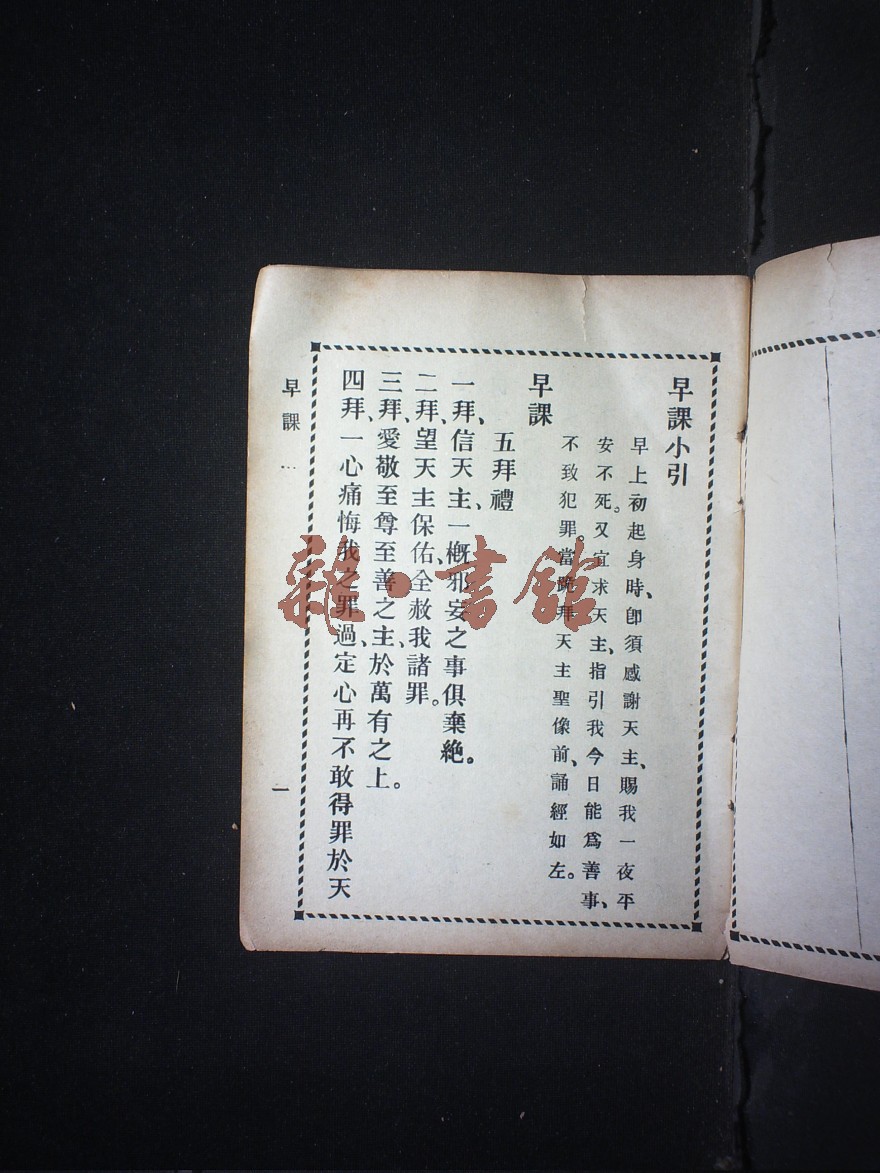 早課小引
早上初起身時、卽須感謝天主、賜我一夜平
安不死。又宜求天主、指引我今日能爲善事、
不致犯罪。當跪拜天主聖像前、誦經如左。
早課
五拜禮
一拜、信天主、一概邪妄之事俱棄絶。
二拜、望天主保佑、全赦我諸罪。
三拜、愛敬至尊至善之主、於萬有之上。
四拜、一心痛悔我之罪過、定心再不敢得罪於天
早課…
一
雜·書館